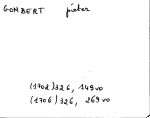 GOMBERT pieter
(1702) 326, 149vo
(1706) 326, 269vo